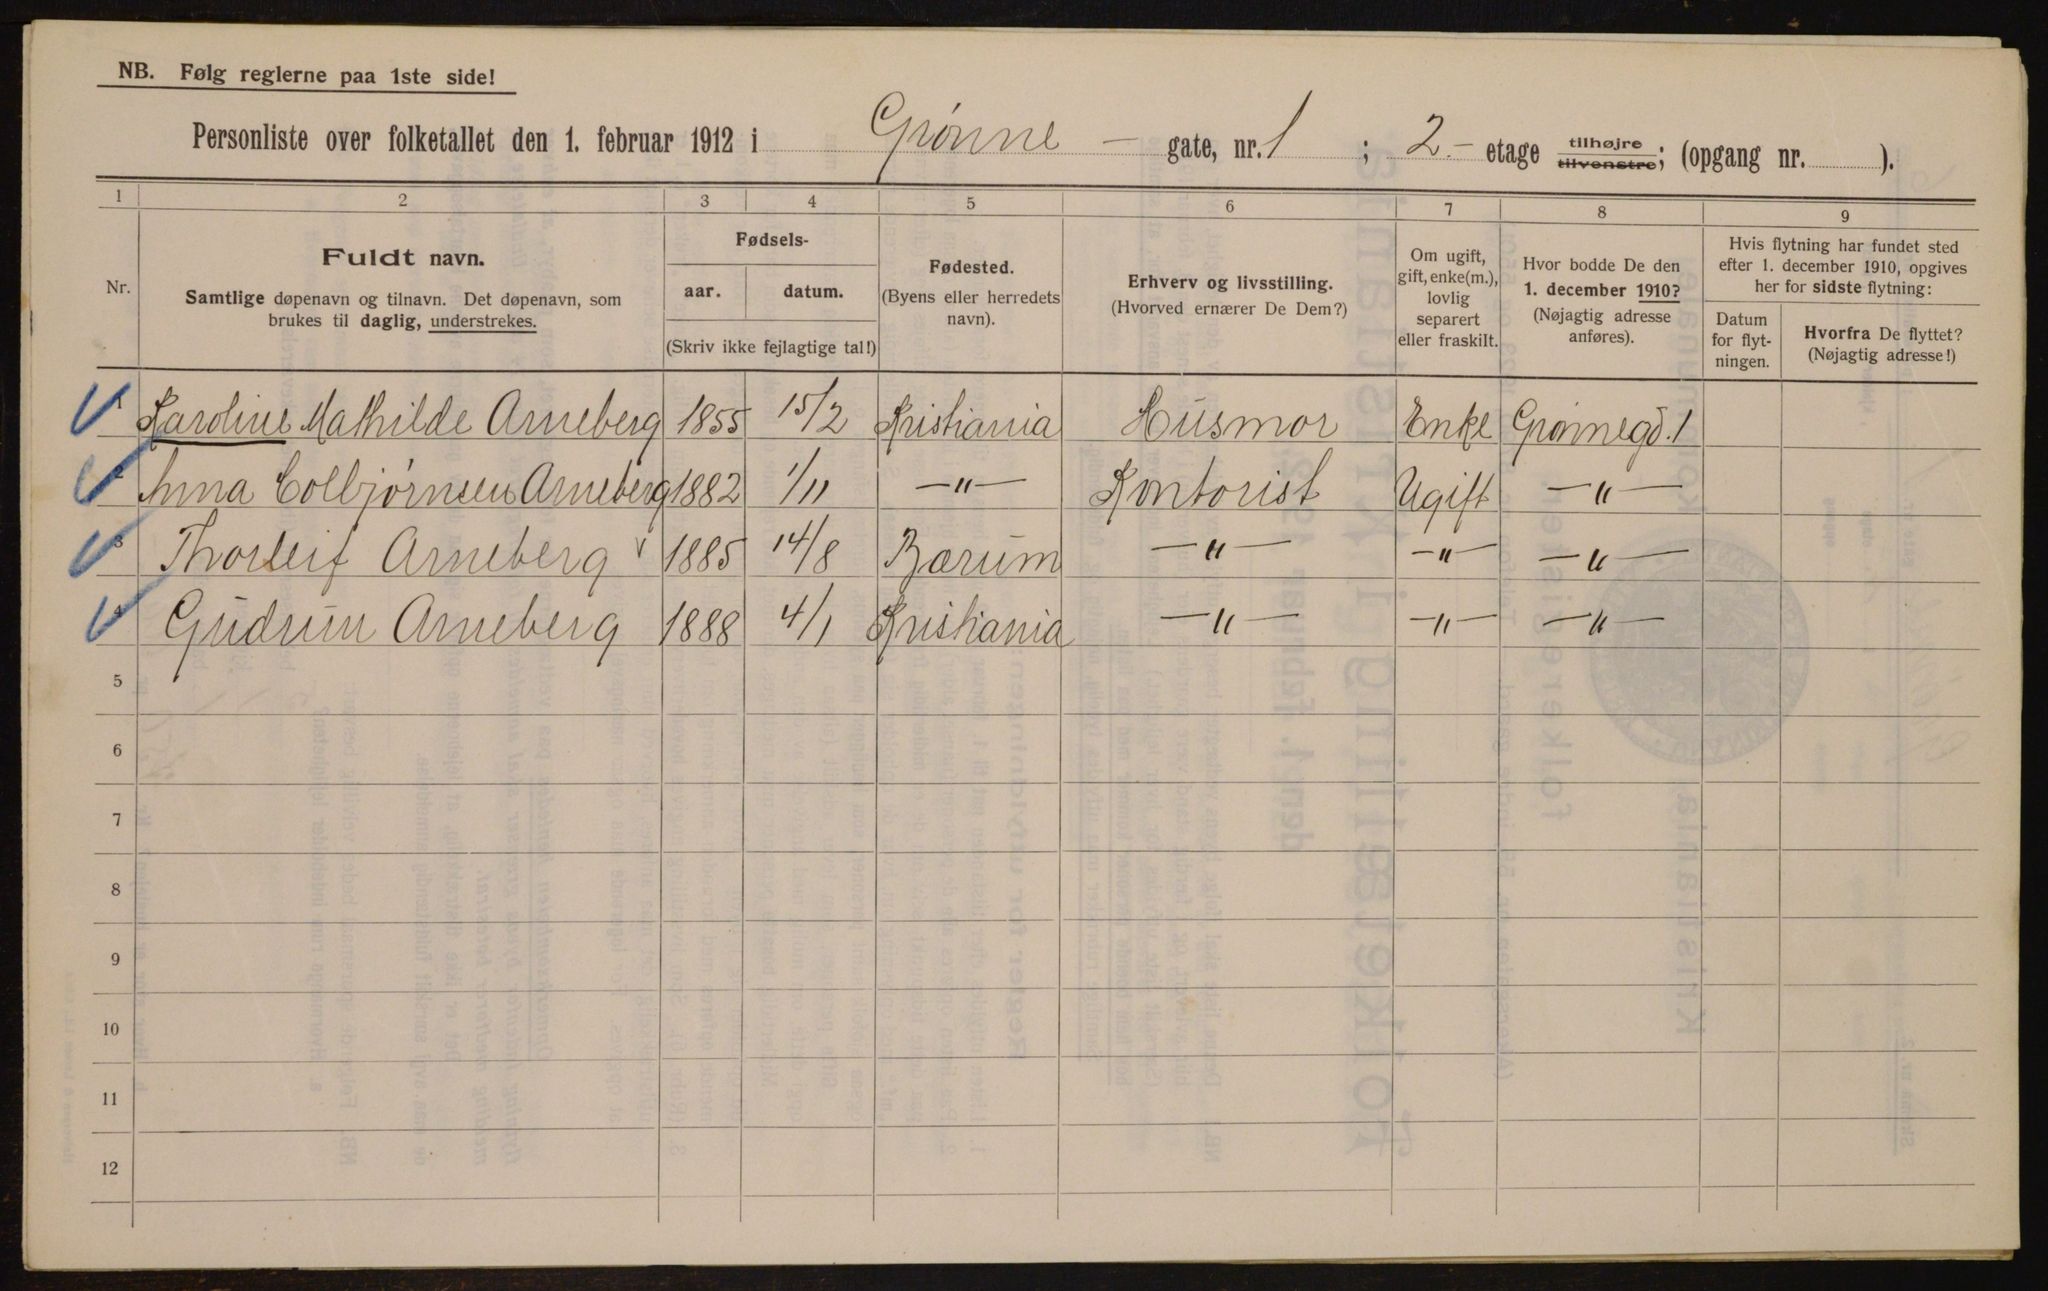 NB. Følg reglerne paa 1ste side!
Personliste over folketallet den 1. februar 1912 i Grønne - gate, nr. 1 ; 2.- etage tilhøjre tilvenstre; (opgang nr. ).
1 2 3 4 5 6 7 8 9
Nr.
Fuldt navn.
Samtlige døpenavn og tilnavn. Det døpenavn, som
brukes til daglig, understrekes.
Fødsels-
aar. datum.
(Skriv ikke fejlagtige tal!)
Fødested.
(Byens eller herredets
navn).
Erhverv og livsstilling.
(Hvorved ernærer De Dem?)
Om ugift,
gift, enke(m.),
lovlig
separert
eller fraskilt.
Hvor bodde De den
1. december 1910?
(Nøjagtig adresse
anføres).
Hvis flytning har fundet sted
efter 1. december 1910, opgives
her for sidste flytning:
Datum
for flyt-
ningen.
Hvorfra De flyttet?
(Nøjagtig adresse!)
1 Karoline Mathilde Arneberg 1855 15/2 Kristiania Husmor Enke Grønnegd. 1
2 Anna Colbjørnsen Arneberg 1882 1/11 —"— Kontorist Ugift —"—
3 Thorleif Arneberg 1885 14/8 Bærum —"— —"— —"—
4 Gudrun Arneberg 1888 4/1 Kristiania —"— —"— —"—
5
6
7
8
9
10
11
12